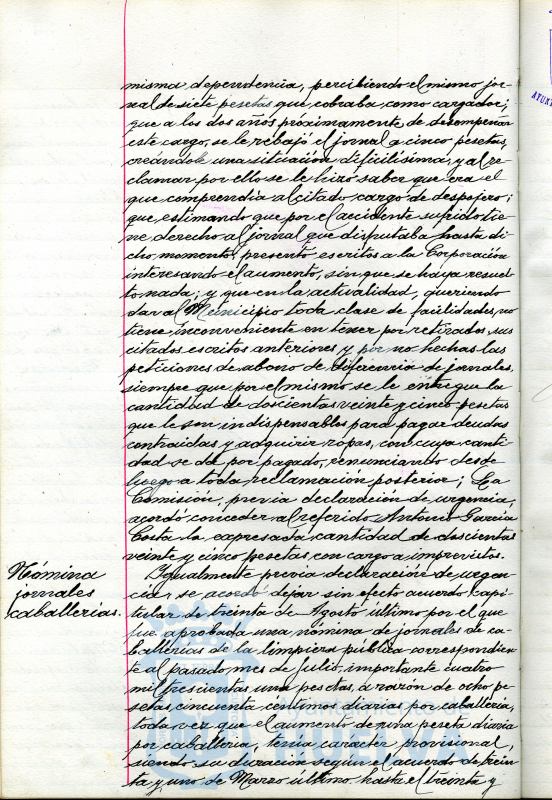 misma dependencia, percibiendo el mismo jor-
nal de siete pesetas que cobraba como cargador;
que a los dos años próximamente de desempeñar
este cargo, se le rebajó el jornal a cinco pesetas,
creándole una situación dificilísima, y al re-
clamar por ello se le hizo saber que era el
que comprendía al citado cargo de despojero;
que estimando que por el accidente sufrido tie-
ne derecho al jornal que disfrutaba hasta di-
cho momento, presentó escritos a la Corporación
interesando el aumento, sin que se haya resuel-
to nada; y que en la actualidad, queriendo
dar al Municipio toda clase de facilidades, no
tiene inconveniente en tener por retirados sus
citados escritos anteriores y por no hechas las
peticiones de abono de diferencia de jornales,
siempre que por el mismo se le entregue la
cantidad de doscientas veinte y cinco pesetas
que le son indispensables para pagar deudas
contraidas y adquirir ropas, con cuya canti-
dad se da por pagado, renunciando desde
luego a toda reclamación posterior; La
Comisión, previa declaración de urgencia,
acordó conceder al referido Antonio García
Costa la expresada cantidad de doscientas
veinte y cinco pesetas con cargo a imprevistos.
Nómina
jornales
caballerías.
Igualmente previa declaración de urgen-
cia, se acordó dejar sin efecto acuerdo capi-
tular de treinta de Agosto último por el que
fue aprobada una nómina de jornales de ca-
ballerías de la limpieza pública correspondien-
te al pasado mes de Julio, importante cuatro
mil trescientas una pesetas, a razón de ocho pe-
setas, cincuenta céntimos diarias por caballería,
toda vez que el aumento de una peseta diaria
por caballería, tenía caracter provisional,
siendo su duración según el acuerdo de trein-
ta y uno de Marzo último hasta el treinta y
HUELVA